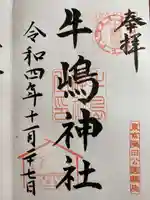 奉拝
東京隅田公園鎮座
牛嶋神社
令和四年十二月廿七日